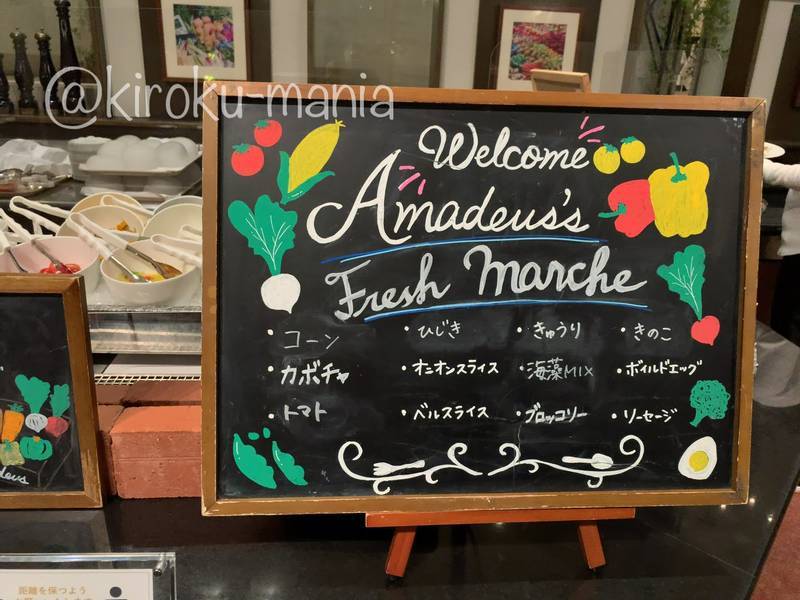 @kiroku-mania
Welcome
Amadeus's
Fresh Marche
・コーン ・ひじき ・きゅうり ・きのこ
・カボチャ ・オニオンスライス ・海藻MIX ・ボイルドエッグ
・トマト ・ベルスライス ・ブロッコリー ・ソーセージ
距離を保つよう